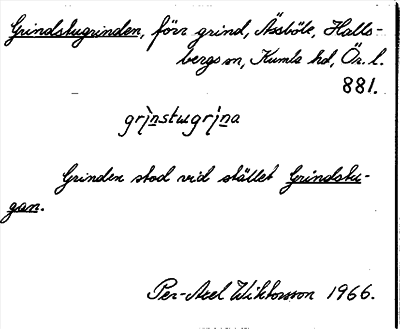 Grindstugrinden, förr grind, Åssböle, Halls-
bergs sn, Kumla hd, Ör. l.
881.
grinstugrina
Grinden stod vid stället Grindstu-
gan.
Per-Axel Wiktorsson 1966.